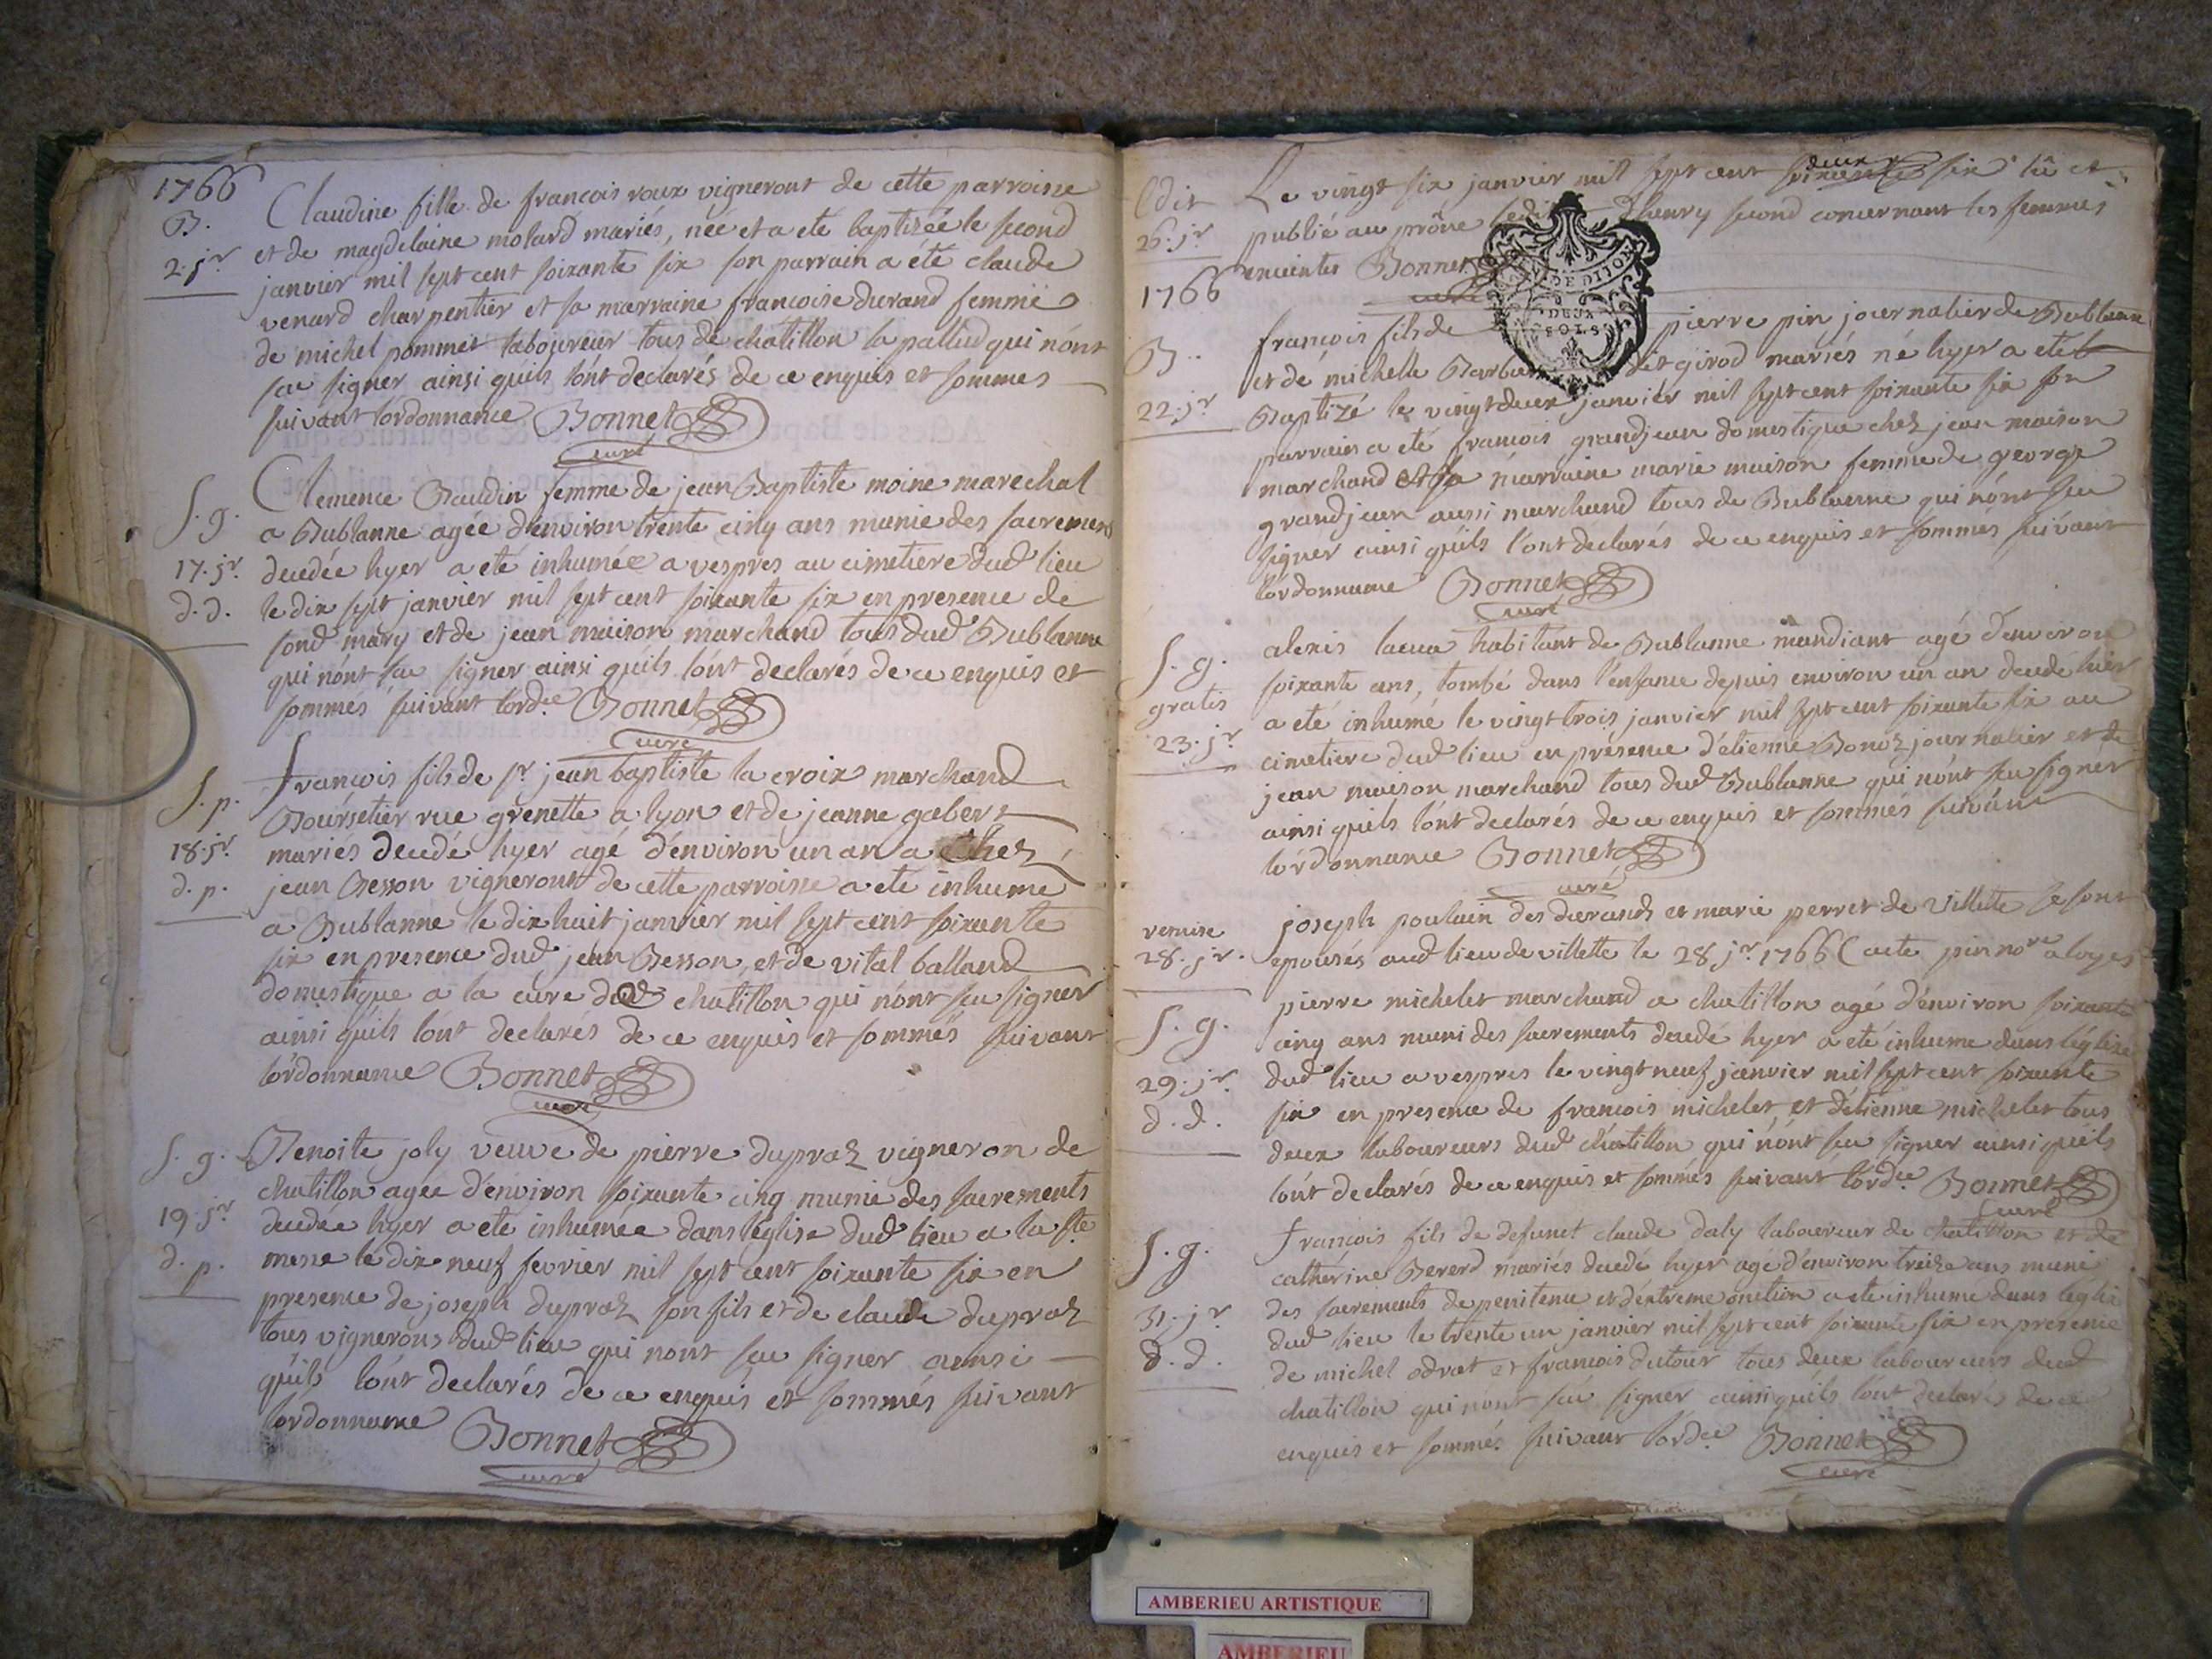 1766
B.
2. jr
Claudine fille de françois roux vigneront de cette parroisse
et de magdelaine molard mariés, née et a eté baptizée le second
janvier mil sept cent soixante six son parrain a été claude
venard charpentier et sa marraine francoise durand femme
de michel pommet laboureur tous de châtillon la pallud qui nónt
sçu signer ainsi quils lónt declarés de ce enquis et sommes
suivant lórdonnance Bonnet
curé
S. g.
17. jr
d. d.
Clemence Baudin femme de jean Baptiste moine marechal
a Bublanne agée d'environ trente cinq ans munie des sacrements
decedée hyer a eté inhumée a vespres au cimetiere dud lieu
le dix sept janvier mil sept cent soixante six en presence de
sond mary et de jean maison marchand tous dud Bublanne
qui nónt sçu signer ainsi quils lónt declarés de ce enquis et
sommés suivant lordce Bonnet
curé
S. p.
18. jr
d. p.
françois fils de sr jean baptiste la croix marchand
Boursetier rue grenette a lyon et de jeanne gabert
mariés decedé hyer agé d'environ un an a chez
jean Besson vigneront de cette parroisse a eté inhumé
a Bublanne le dix huit janvier mil sept cent soixante
six en presence dud jean Besson, et de vital balland
domestique a la cure dud chatillon qui nónt sçu signer
ainsi quils lónt declarés de ce enquis et sommés suivant
lórdonnance Bonnet
curé
S. g.
19. jr
d. p.
Benoite joly veuve de pierre dupraz vigneron de
chatillon agée d'environ soixante cinq munie des sacrements
decedée hyer a eté inhumée dans léglise dud lieu a la ste
messe le dix neuf fevrier mil sept cent soixante six en
presence de joseph dupraz son fils et de claude dupraz
tous vignerons dud lieu qui nont sçu signer ainsi
quils lónt declarés de ce enquis et sommés suivant
lórdonnance Bonnet
curé
Edit
26. jr
Le vingt six janvier mil sept cent soixante six lû et
publié au prône ledit d'henry second concernant les femmes
enceintes Bonnet
curé
DE DIJON
DEUX
SOLS
1766
B.
22. jr
françois fils de pierre pin journalier de Bublanne
et de michelle Barbe dit girod mariés né hyer a eté
Baptizé le vingt deux janvier mil sept cent soixante six son
parrain a eté francois grandjean domestique chez jean maison
marchand et sa marraine marie maison femme de george
grandjean aussi marchand tous de Bublanne qui nónt sçu
signer ainsi quils l'ont declarés de ce enquis et sommés suivant
lórdonnance Bonnet
curé
S. g.
gratis
23. jr
alexis lacua habitant de Bublanne mandiant agé d'environ
soixante ans, tombé dans l'enfance depuis environ un an decedé hier
a eté inhumé le vingt trois janvier mil sept cent soixante six au
cimetiere dud lieu en presence d'étienne Bonoz journalier et de
jean maison marchand tous dud Bublanne qui nónt sçu signer
ainsi quils lónt declarés de ce enquis et sommés suivant
lórdonnance Bonnet
curé
remise
28. jr.
joseph poulain des durands et marie perret de villette se sont
epousés aud lieu de villette le 28 jr 1766 (acte pin nore a loyes
S. g.
29. jr
d. d.
pierre michelet marchand a chatillon agé d'énviron soixante
cinq ans muni des sacrements decedé hyer a eté inhumé dans léglise
dud lieu a vespres le vingt neuf janvier mil sept cent soixante
six en presence de francois michelet et d'étienne michelet tous
deux laboureurs dud chatillon qui nónt sçu signer ainsi quils
lónt declarés de ce enquis et sommés suivant lórdce Bonnet
curé
S. g.
31. jr
d. d.
françois fils de defunct claude daly laboureur de chatillon et de
catherine Bererd mariés decedé hyer agé d'environ treize ans muni
des sacrements de penitence et d'extreme onction a eté inhumé dans léglise
dud lieu le trente un janvier mil sept cent soixante six en presence
de michel odrat et francois dutour tous deux laboureurs dud
chatillon qui nónt sçu signer ainsi quils lónt declarés de ce
enquis et sommés suivant lórdce Bonnet
curé
AMBERIEU ARTISTIQUE
AMBERIEU